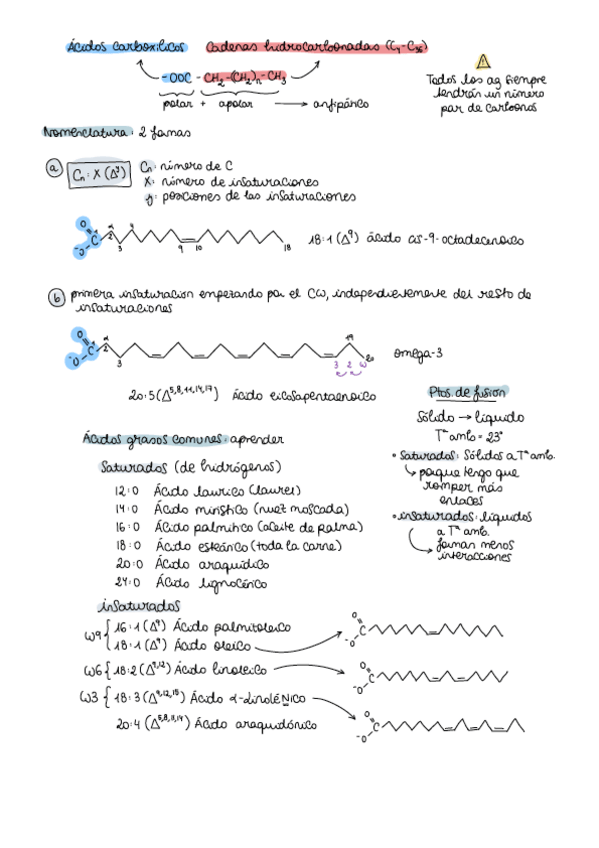 Ácidos carboxílicos Cadenas hidrocarbonadas (C₄-C₃₆)
-OOC - CH₂-(CH₂)ₙ-CH₃
polar + apolar → anfipático
Todos los ag siempre
tendrán un número
par de carbonos
Nomenclatura: 2 formas
a Cₙ: X (Δʸ)
Cₙ: número de C
X: número de insaturaciones
y: posiciones de las insaturaciones
O
⁻O C 1 2 α 3 4 9 10 18
18:1 (Δ⁹) ácido cis-9-octadecenoico
b primera insaturación empezando por el Cω, independientemente del resto de
insaturaciones
O
⁻O C 1 2 α 3 19 20
3 2 ω
omega-3
20:5 (Δ⁵,⁸,¹¹,¹⁴,¹⁷) ácido eicosapentaenoico
Ptos. de fusión
Sólido → líquido
Tª amb = 23°
• Saturados: Sólidos a Tª amb.
↳ porque tengo que
romper más
enlaces
• insaturados: líquidos
a Tª amb.
↳ forman menos
interacciones
Ácidos grasos comunes: aprender
Saturados (de hidrógenos)
12:0 Ácido laurico (laurel)
14:0 Ácido mirístico (nuez moscada)
16:0 Ácido palmítico (aceite de palma)
18:0 Ácido esteárico (toda la carne)
20:0 Ácido araquídico
24:0 Ácido lignocérico
insaturados
ω9 { 16:1 (Δ⁹) Ácido palmitoleico
18:1 (Δ⁹) Ácido oleico
ω6 { 18:2 (Δ⁹,¹²) Ácido linoleico
ω3 { 18:3 (Δ⁹,¹²,¹⁵) Ácido α-linoléNico
20:4 (Δ⁵,⁸,¹¹,¹⁴) Ácido araquidónico
O
⁻O C
O
⁻O C
O
⁻O C